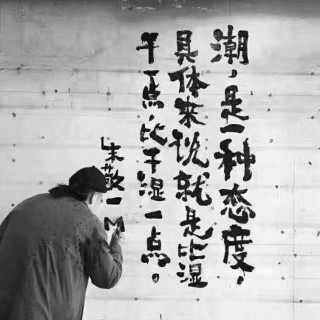 潮,是一种态度,
具体来说就是比湿
干一点,比干湿一点。
朱敬一